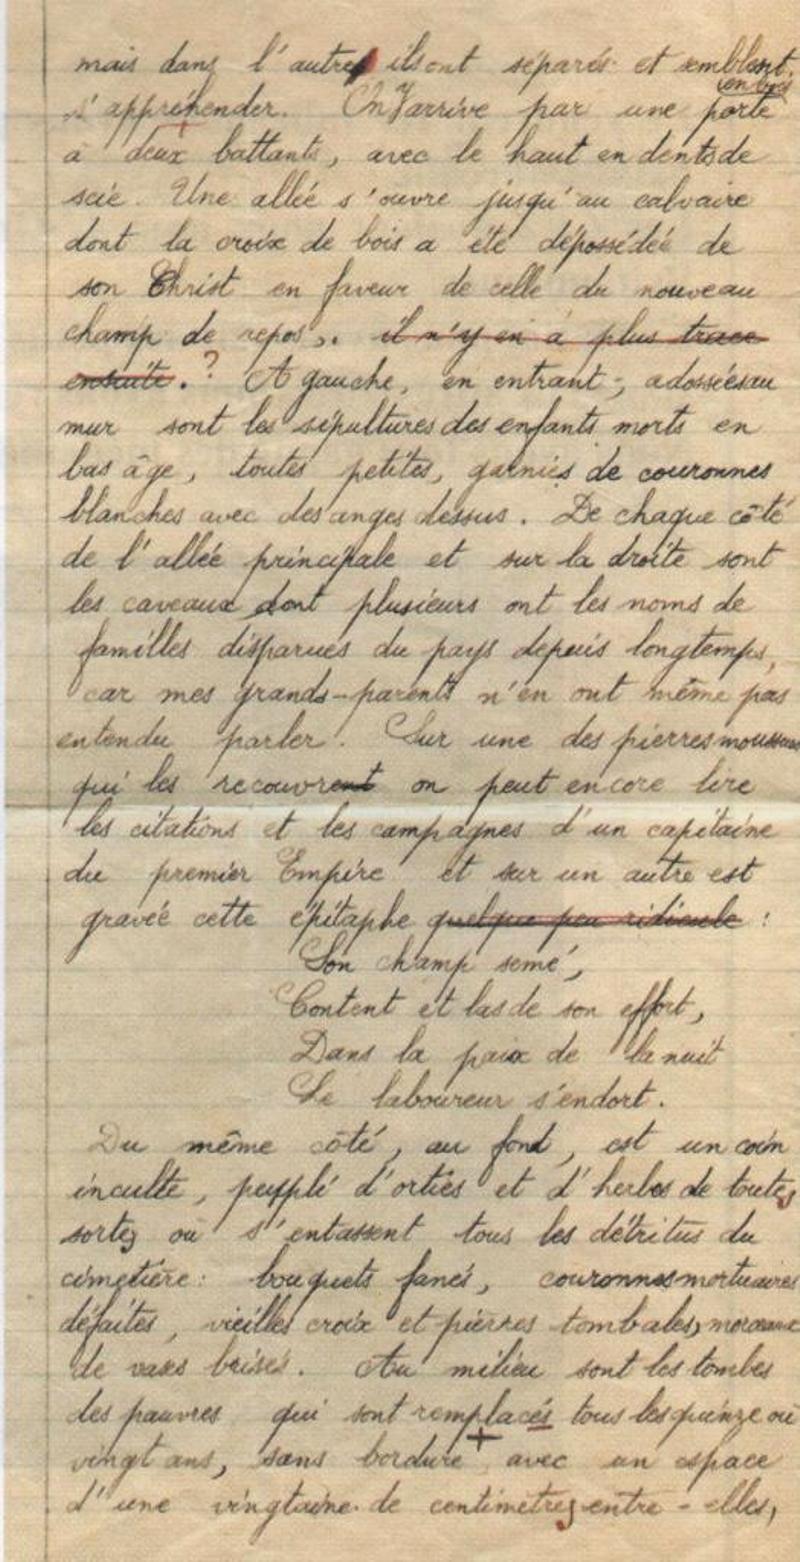 mais dans l'autre ils ont séparés et semblent
s'appréhender. On y arrive par une porte
en bois
à deux battants, avec le haut en dents de
scie. Une allée s'ouvre jusqu'au calvaire
dont la croix de bois a été dépossédée de
son Christ en faveur de celle du nouveau
champ de repos,. il n'y en a plus trace
ensuite. ? A gauche, en entrant, adossées au
mur sont les sépultures des enfants morts en
bas âge, toutes petites, garnies de couronnes
blanches avec des anges dessus. De chaque côté
de l'allée principale et sur la droite sont
les caveaux dont plusieurs ont les noms de
familles disparues du pays depuis longtemps,
car mes grands-parents n'en ont même pas
entendu parler. Sur une des pierres
qui les recouvrent on peut encore lire
les citations et les campagnes d'un capitaine
du premier Empire et sur un autre est
gravée cette épitaphe quelque peu ridicule :
Son champ semé,
Content et las de son effort,
Dans la paix de la nuit
Le laboureur s'endort.
Du même côté, au fond, est un coin
inculte, peuplé d'orties et d'herbes de toutes
sortes où s'entassent tous les détritus du
cimetière : bouquets fanés, couronnes mortuaires
défaites, vieilles croix et pierres tombales, morceaux
de vases brisés. Au milieu sont les tombes
des pauvres qui sont remplacés tous les quinze ou
vingt ans, sans bordure + avec un espace
d'une vingtaine de centimètres entre-elles,